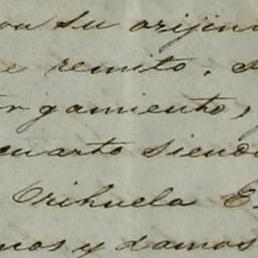 con su orijin
e remito. A
or gamiento,
cuarto siendo
Orihuela E
mos y damos